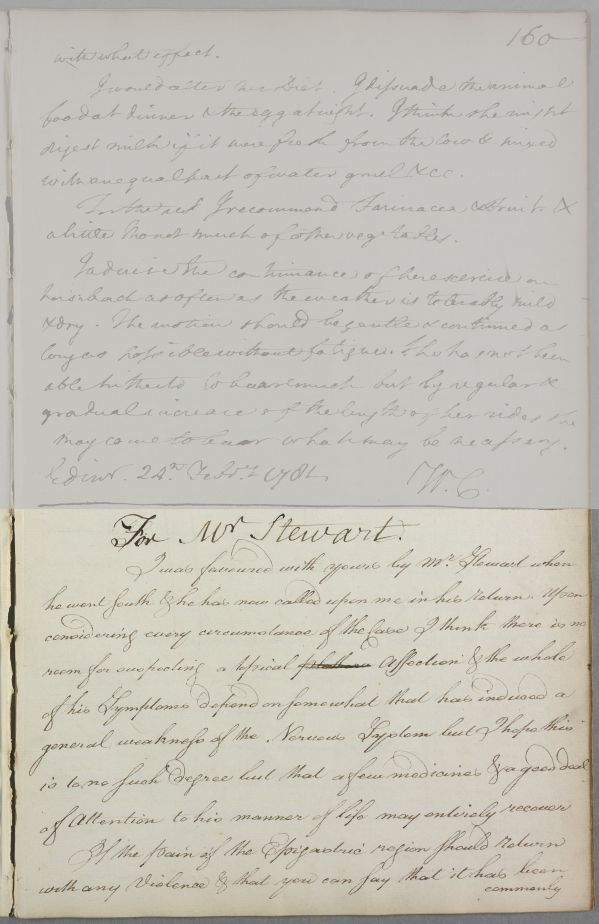 160
with what effect.
I would alter her Diet. I dissuade the animal
food at dinner & the egg at night. I think she might
digest milk if it were fresh from the Cow & mixed
with an equal part of water gruel &cc.
For the rest I recommend Farinacea & Fruits &
a little tho not much of other vegetables.
I advise the continuance of her exercise on
horseback as often as the weather is tolerably mild
& dry. The motion should be gentle & continued as
long as possible without fatigue. She has not been
able hitherto to bear much but by regular &
gradual increase of the length of her rides she
may come to bear what may be necessary.
Edinr. 24th Febry. 1781 W.C.
For Mr Stewart.
I was favoured with yours by Mr. Stewart when
he went South & he has now called upon me in his return. Upon
considering every circumstance of the Case I think there is no
room for suspecting a topical Affection & the whole
of his Symptoms depend on somewhat that has induced a
general weakness of the Nervous System but I hope this
is to no such degree but that a few medicines & a good deal
of Attention to his manner of life may entirely recover
If the pain of the Epigastric region should return
with any Violence & that you can say that it has been
commonly